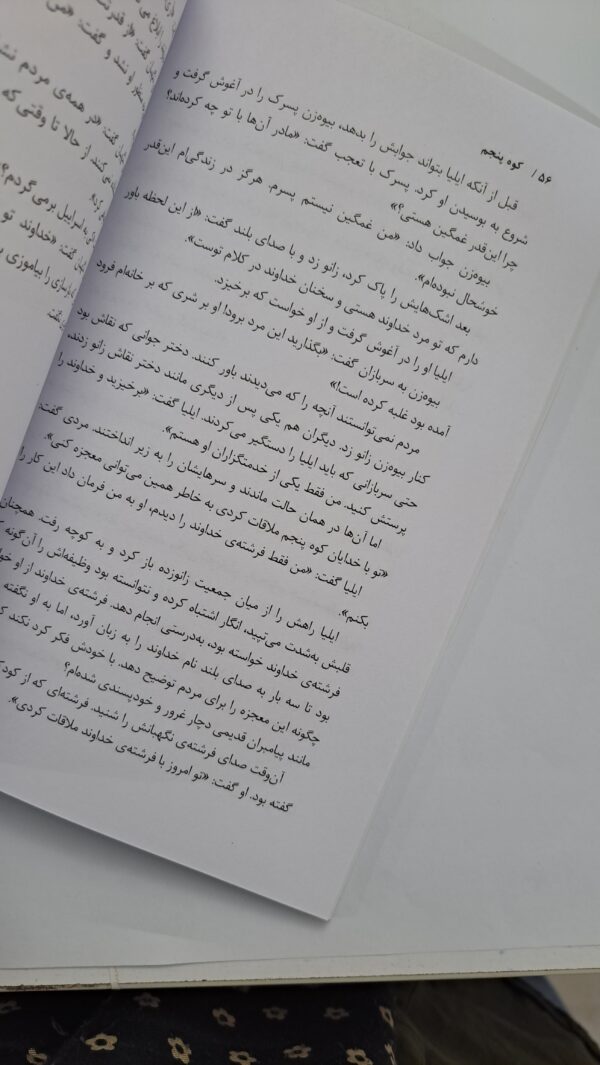 ۵۶ / کوه پنجم
قبل از آنکه ایلیا بتواند جوابش را بدهد، بیوه‌زن پسرک را در آغوش گرفت و
شروع به بوسیدن او کرد. پسرک با تعجب گفت: «مادر آن‌ها با تو چه کرده‌اند؟
چرا این‌قدر غمگین هستی؟»
بیوه‌زن جواب داد: «من غمگین نیستم پسرم. هرگز در زندگی‌ام این‌قدر
خوشحال نبوده‌ام».
بعد اشک‌هایش را پاک کرد، زانو زد و با صدای بلند گفت: «از این لحظه باور
دارم که تو مرد خداوند هستی و سخنان خداوند در کلام توست».
ایلیا او را در آغوش گرفت و از او خواست که برخیزد.
بیوه‌زن به سربازان گفت: «بگذارید این مرد برود! او بر شری که بر خانه‌ام فرود
آمده بود غلبه کرده است!»
مردم نمی‌توانستند آنچه را که می‌دیدند باور کنند. دختر جوانی که نقاش بود
کنار بیوه‌زن زانو زد. دیگران هم یکی پس از دیگری مانند دختر نقاش زانو زدند،
حتی سربازانی که باید ایلیا را دستگیر می‌کردند. ایلیا گفت: «برخیزید و خداوند را
پرستش کنید. من فقط یکی از خدمتگزاران او هستم».
اما آن‌ها در همان حالت ماندند و سرهایشان را به زیر انداختند. مردی گفت:
«تو با خدایان کوه پنجم ملاقات کردی به خاطر همین می‌توانی معجزه کنی».
ایلیا گفت: «من فقط فرشته‌ی خداوند را دیدم، او به من فرمان داد این کار را
بکنم».
ایلیا راهش را از میان جمعیت زانوزده باز کرد و به کوچه رفت. همچنان
قلبش به‌شدت می‌تپید، انگار اشتباه کرده و نتوانسته بود وظیفه‌اش را آن‌گونه
فرشته‌ی خداوند خواسته بود، به‌درستی انجام دهد. فرشته‌ی خداوند از او
بود تا سه بار به صدای بلند نام خداوند را به زبان آورد، اما به او نگفته
چگونه این معجزه را برای مردم توضیح دهد. با خودش فکر کرد نکند
مانند پیامبران قدیمی دچار غرور و خودپسندی شده‌ام؟
آن‌وقت صدای فرشته‌ی نگهبانش را شنید. فرشته‌ای که از
گفته بود. او گفت: «تو امروز با فرشته‌ی خداوند ملاقات کردی».